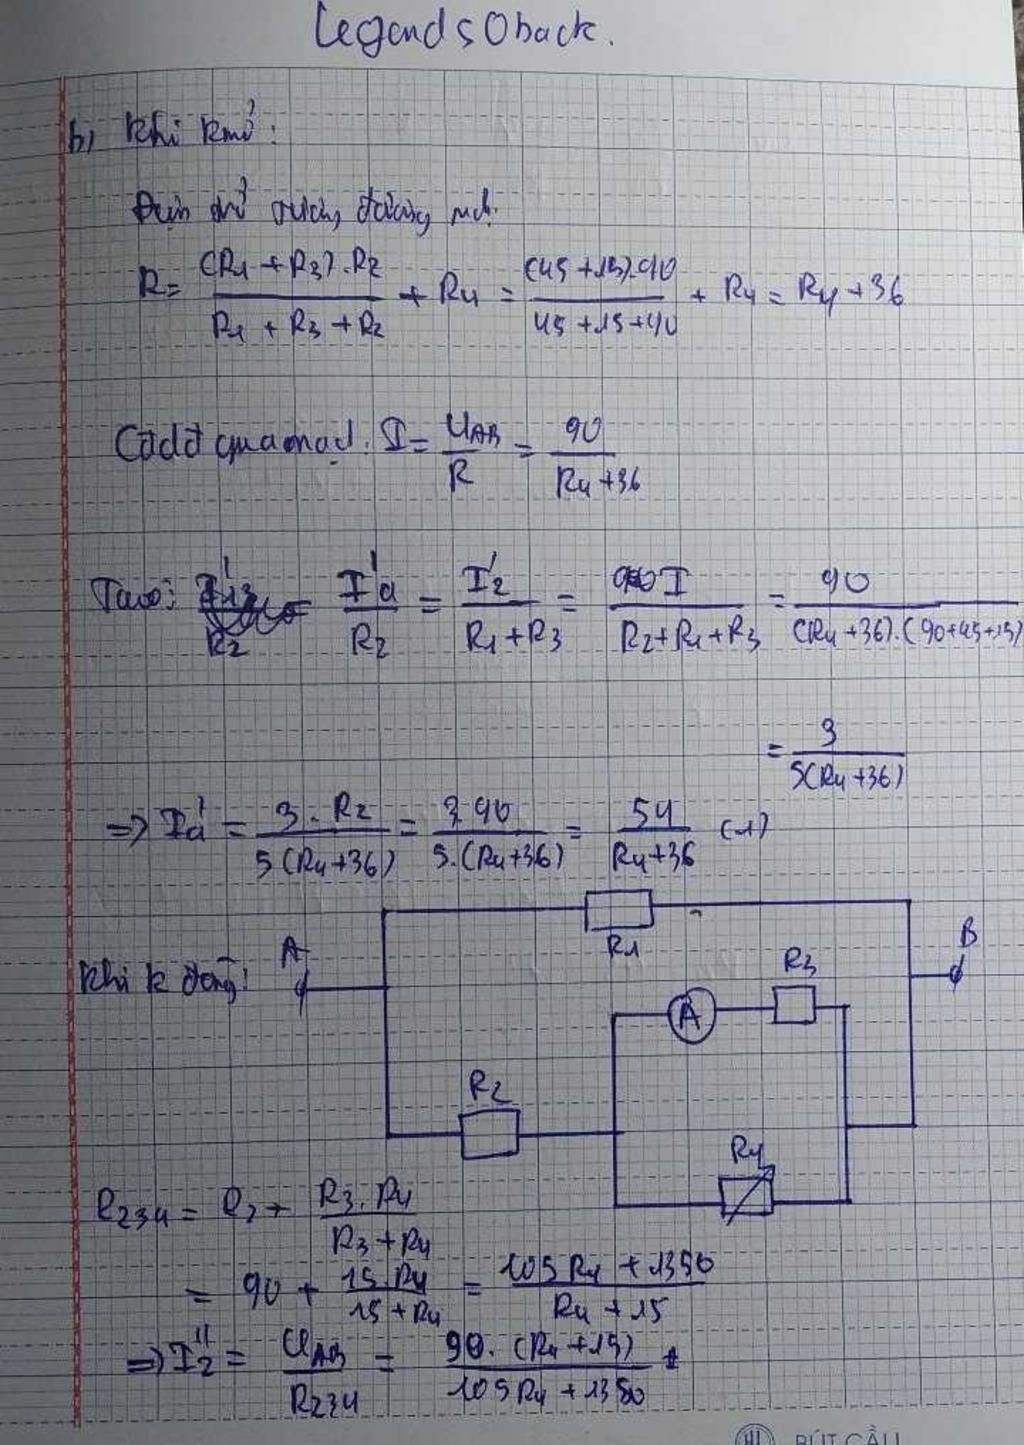 Legends0back.
b) Khi k mở:
Điện trở tương đương mđ:
R = ((R1 + R3).R2)/(R1 + R3 + R2) + R4 = ((45 + 15).90)/(45 + 15 + 90) + R4 = R4 + 36
Cđdđ qua mạch: I = UAB/R = 90/(R4 + 36)
Ta có: I'a/R2 = I'2/(R1 + R3) = I/(R2 + R1 + R3) = 90/((R4 + 36).(90 + 45 + 15))
= 3/(5(R4 + 36))
=> I'a = (3.R2)/(5(R4 + 36)) = (3.90)/(5.(R4 + 36)) = 54/(R4 + 36) (1)
Khi k đóng:
A
R1
B
A
R3
R2
R4
R234 = R2 + (R3.R4)/(R3 + R4)
= 90 + (15.R4)/(15 + R4) = (105R4 + 1350)/(R4 + 15)
=> I''2 = UAB/R234 = (90.(R4 + 15))/(105R4 + 1350)
BÚT CẦU